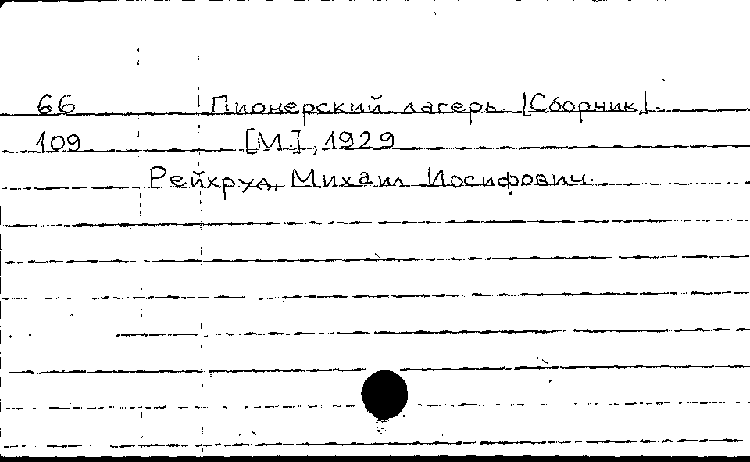 66 Пионерский лагерь. [Сборник].
109 [М.], 1929
Рейхруд, Михаил Иосифович.